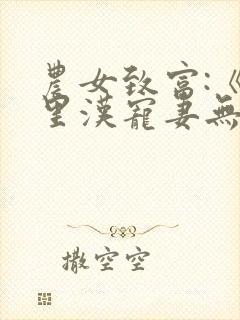 農女致富:《
里漢寵妻無
撒空空